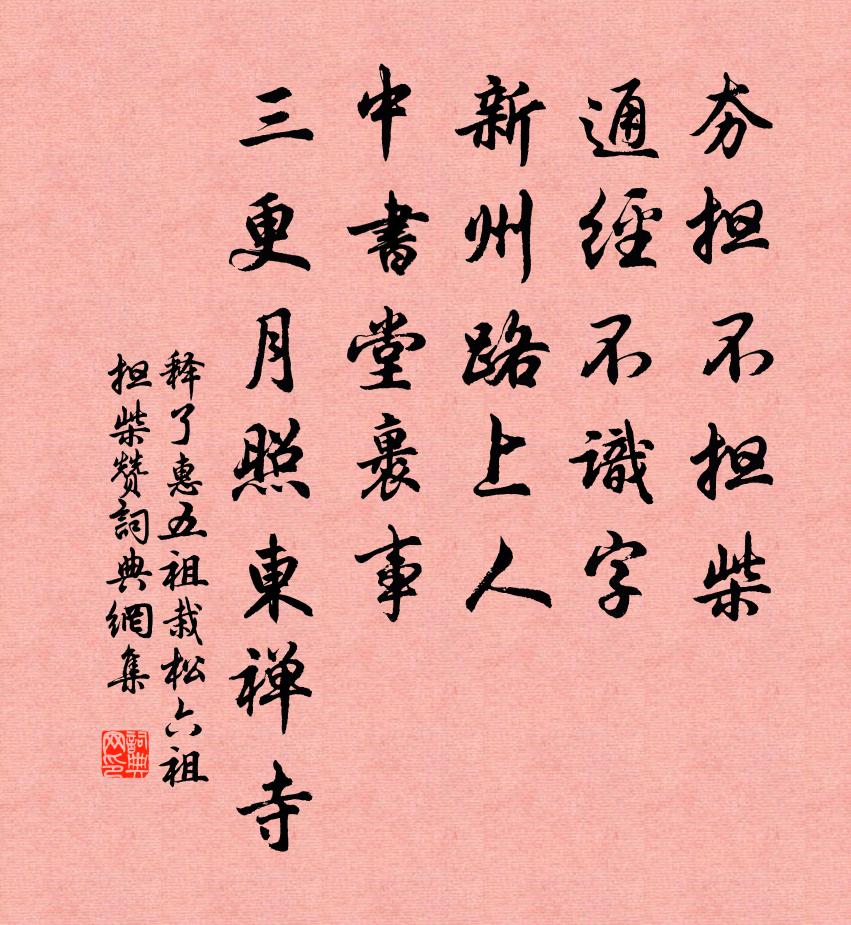 夯担不担柴
通經不識字
新州路上人
中書堂裏事
三更月照東禅寺
释了惠五祖栽松六祖
担柴赞詞典網集
詞典网印